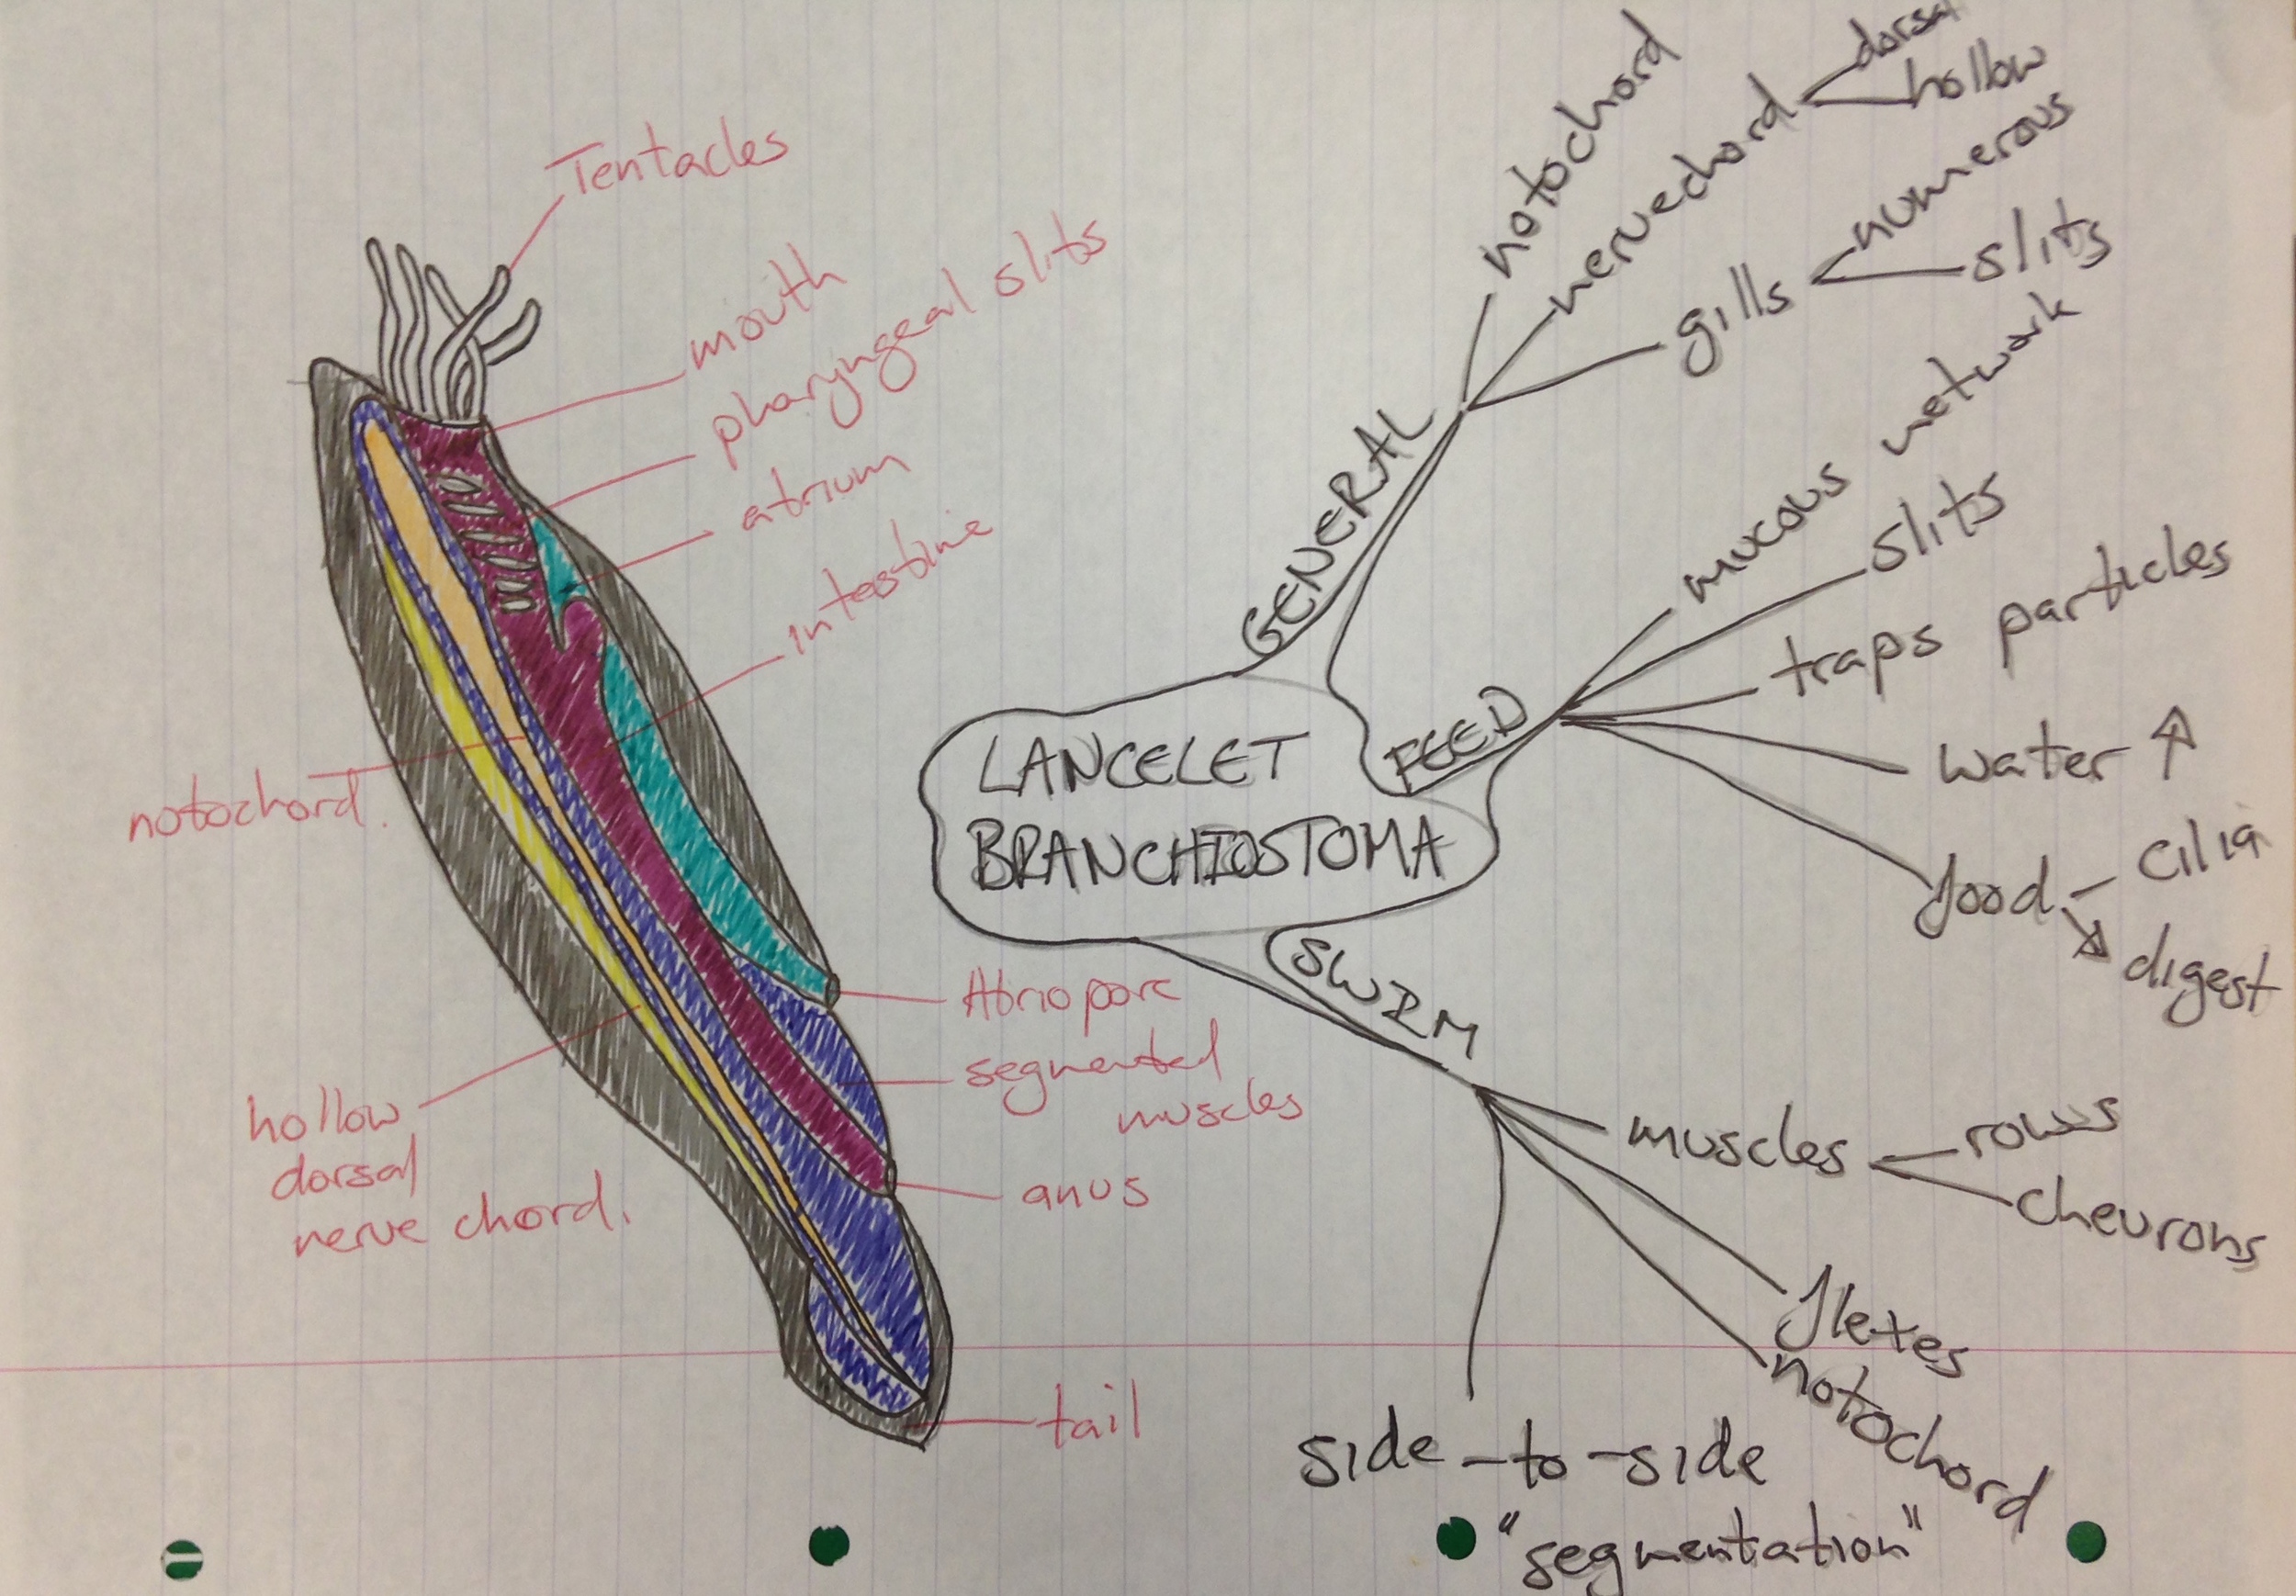 Tentacles
mouth
pharyngeal slits
atrium
intestine
notochord.
hollow
dorsal
nerve chord.
Atriopore
segmented
muscles
anus
tail
LANCELET
BRANCHIOSTOMA
GENERAL
notochord
nerve chord
dorsal
hollow
gills
numerous
slits
FEED
mucous network
slits
traps particles
water ↑
food
cilia
digest
SWIM
muscles
rows
chevrons
flexes
notochord
side-to-side
"segmentation"